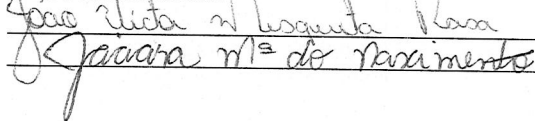 João Victa n Mesquita Rosa
Jaiara Mª do Nascimento